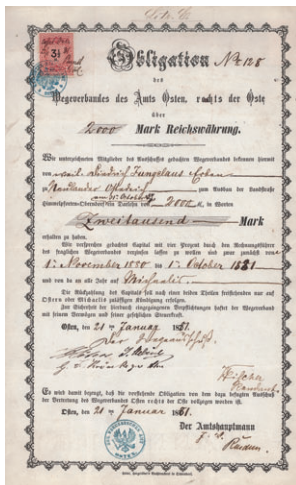 Litr. C.
Obligation No 128
des
Wegeverbandes des Amts Osten, rechts der Oste
über
2000 Mark Reichswährung.
Wir unterzeichneten Mitglieder des Ausschusses gedachten Wegeverbandes bekennen hiermit
von
zu zum Ausbau der Landstraße
2000 M., in Worten
Zweitausend Mark
erhalten zu haben.
Wir versprechen gedachtes Capital mit vier Procent durch den Rechnungsführer
des fraglichen Wegeverbandes verzinsen lassen zu wollen und zwar zunächst vom
1. November 1880 bis 1. October 1881
und von da an alle Jahr auf Michaelis.
Die Rückzahlung des Capitals soll nach einer beiden Theilen freistehenden nur auf
Ostern oder Michaelis zulässigen Kündigung erfolgen.
Zur Sicherheit der hierdurch eingegangenen Verpflichtungen haftet der Wegeverband
mit seinem Vermögen und seiner gesetzlichen Steuerkraft.
Osten, den 21 Januar 1881.
Der Ausschuß
Es wird damit bezeugt, daß die vorstehende Obligation von dem dazu befugten Ausschuß
der Vertretung des Wegeverbandes Osten rechts der Oste vollzogen worden ist.
Osten, den 21 Januar 1881.
Der Amtshauptmann